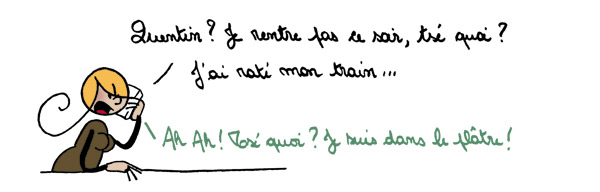 Quentin? Je rentre pas ce soir, tsé quoi?
J'ai raté mon train...
Ah Ah! Tsé quoi? Je suis dans le plâtre!